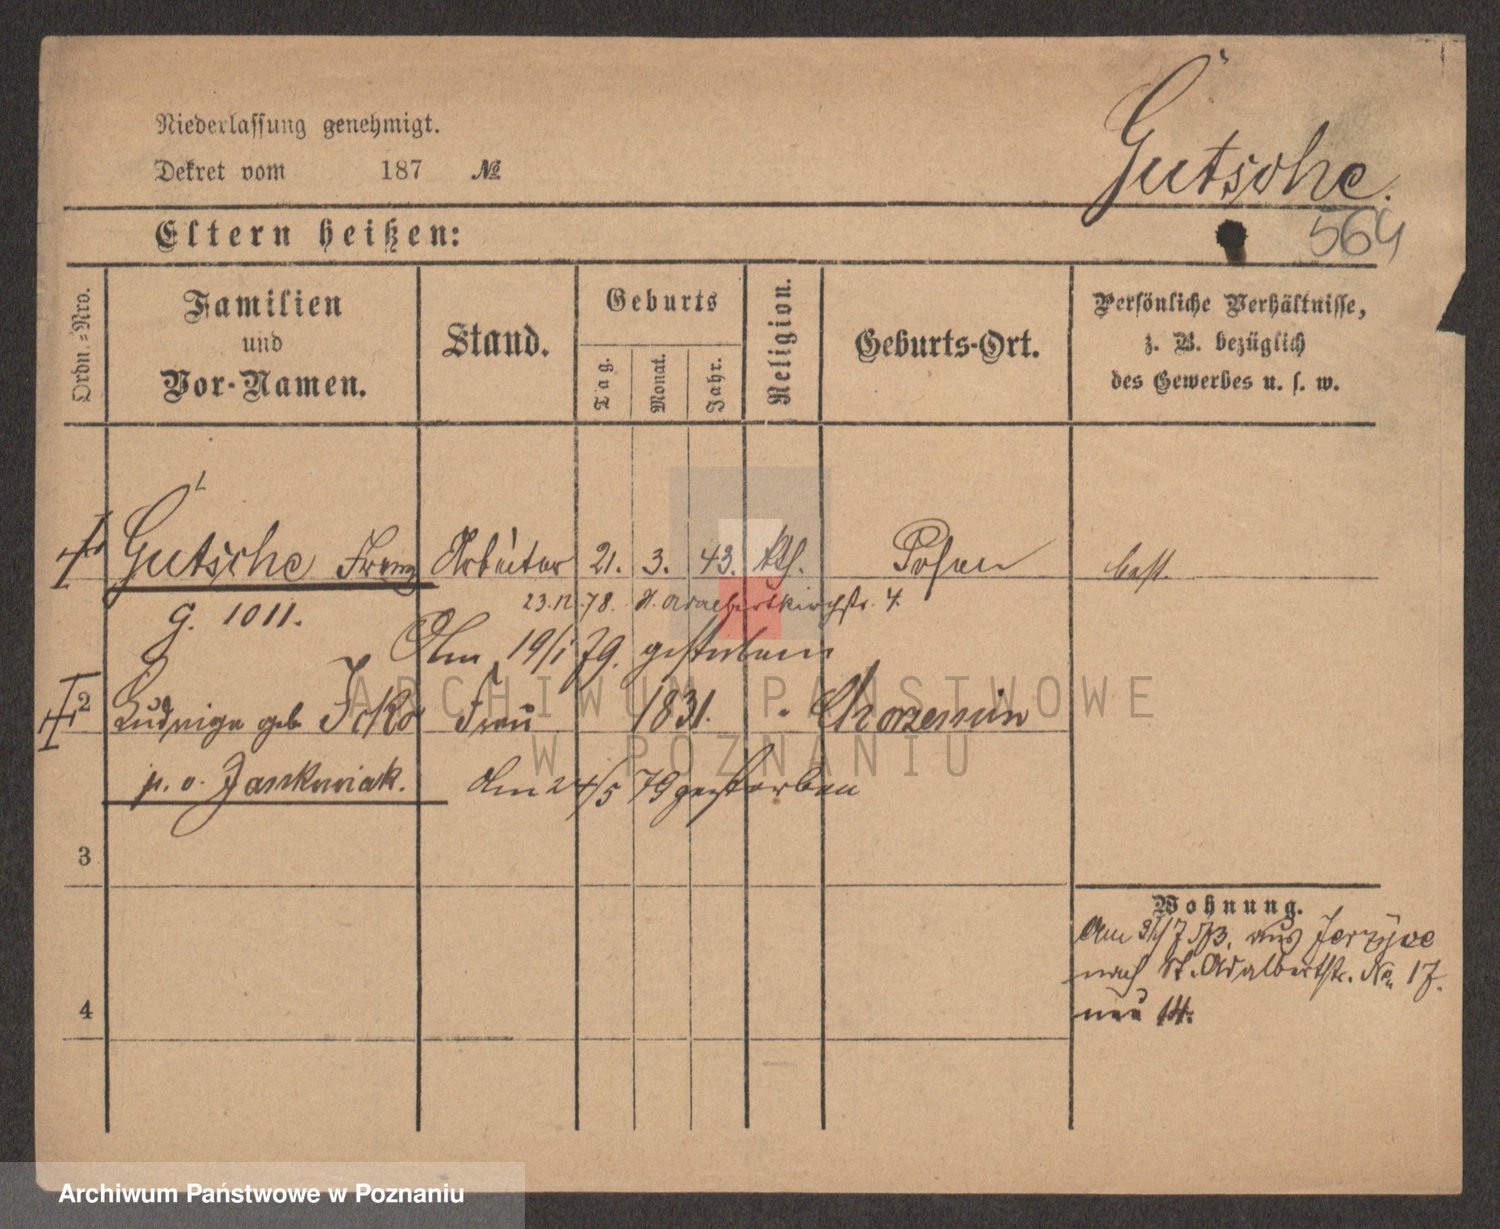 Gütsche.
Niederlassung genehmigt.
Dekret vom 187 №
Eltern heißen:
564
Ordn.-Nro.
Familien
und
Vor-Namen.
Stand.
Geburts
Tag.
Monat.
Jahr.
Religion.
Geburts-Ort.
Persönliche Verhältnisse,
z. B. bezüglich
des Gewerbes u. s. w.
Gütsche Franz Arbeiter 21. 3. 43. kth. Posen
g. 1011. 23.12.78. St. Adalbertkirchstr. 4.
Am 19/1 79. gestorben
2 Ludwiga geb Frau 1831. " Chorzemin
p. v. Jankowiak. Am 24/5 79 gestorben
3
Wohnung.
Am 73. aus Jerzyce
nach St. Adalbertstr. No. 17.
neu 14.
4
ARCHIWUM PAŃSTWOWE
W POZNANIU
Archiwum Państwowe w Poznaniu